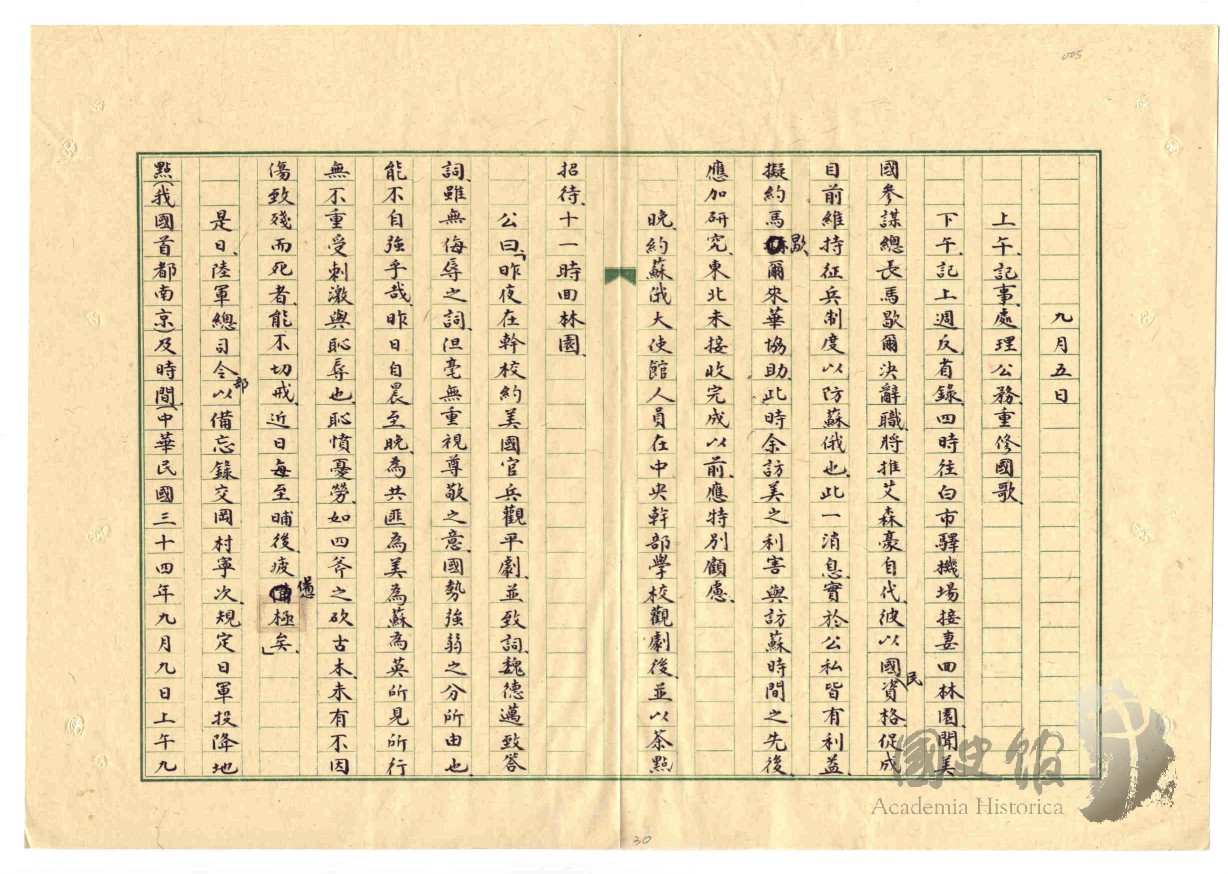 005
九月五日
上午、記事、處理公務、重修國歌、
下午、記上週反省錄、四時往白市驛機場接妻回林園、聞美
國參謀總長馬歇爾決辭職、將推艾森豪自代、彼以國民資格促成
目前維持征兵制度以防蘇俄也、此一消息實於公私皆有利益、
擬約馬歇爾來華協助、此時余訪美之利害與訪蘇時間之先後、
應加研究、東北未接收完成以前、應特別顧慮、
晚、約蘇俄大使館人員在中央幹部學校觀劇後、並以茶點
招待、十一時回林園、
公曰、「昨夜在幹校約美國官兵觀平劇、並致詞、魏德邁致答
詞、雖無侮辱之詞、但毫無重視尊敬之意、國勢強弱之分所由也、
能不自強乎哉、昨日自晨至晚、為共匪為美為蘇為英所見所行
無不重受刺激與恥辱也、恥憤憂勞、如四斧之砍古木、未有不因
傷致殘而死者、能不切戒、近日每至晡後、疲憊極矣、」
是日、陸軍總司令部以備忘錄交岡村寧次、規定日軍投降地
點（我國首都南京）及時間（中華民國三十四年九月九日上午九
30
國史館
Academia Historica